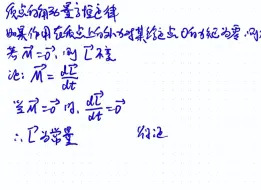 质点的角动量守恒定律
如果作用在质点上的外力对某给定点O的力矩为零，则
若 M⃗=0⃗，则 L⃗ 不变
证：M⃗ = dL⃗/dt
当 M⃗=0⃗ 时，dL⃗/dt=0⃗
∴ L⃗ 为常量 得证